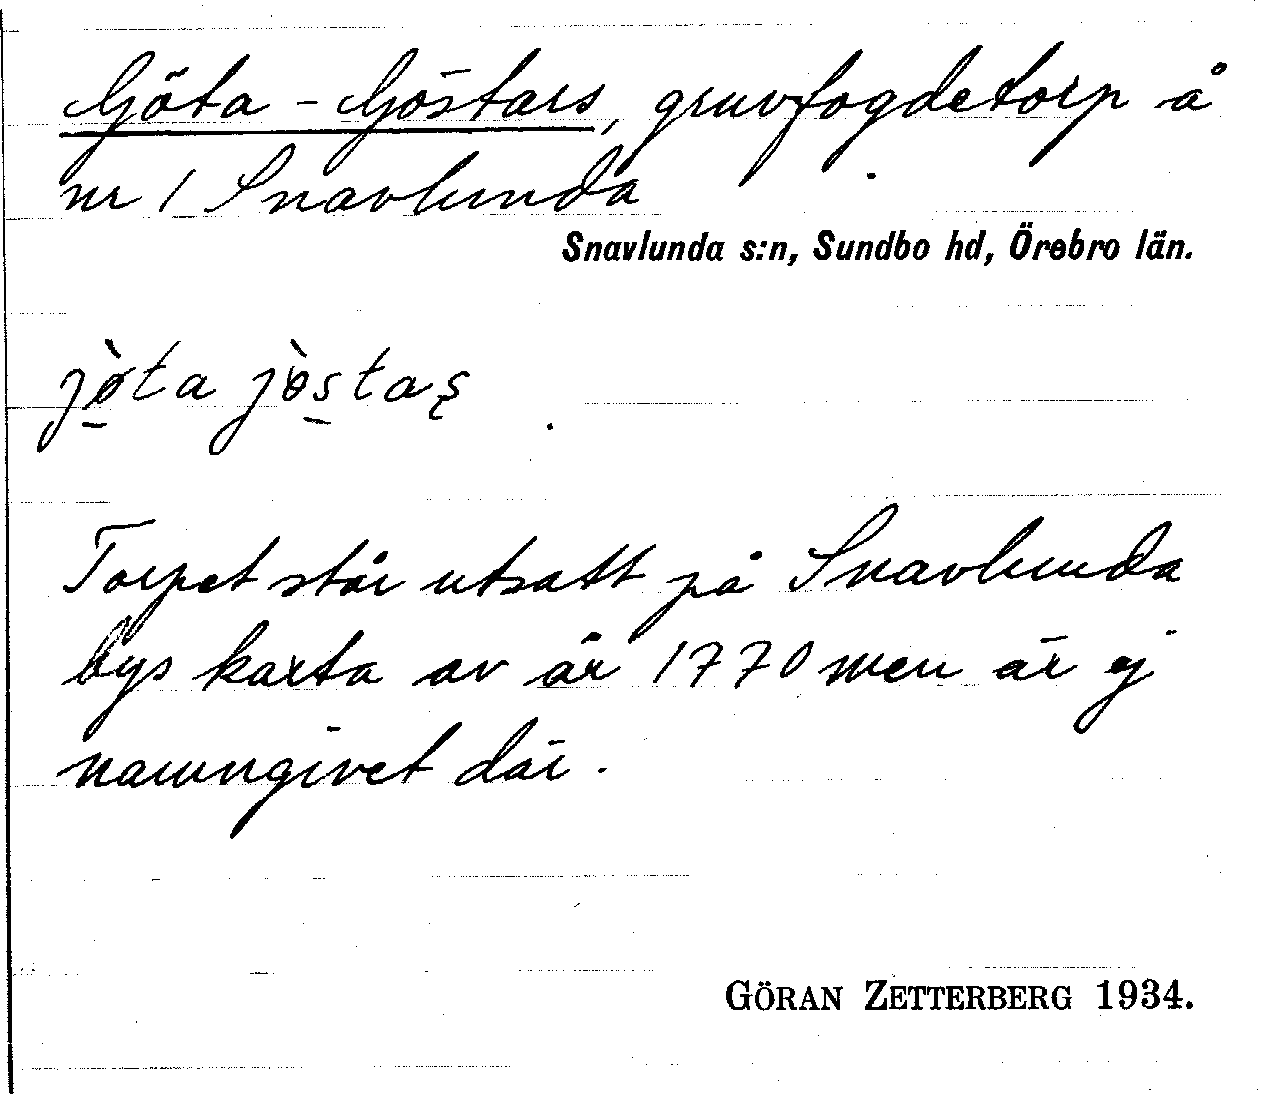 Göta-Göstars, gruvfogdetorp å
nr 1 Snavlunda
Snavlunda s:n, Sundbo hd, Örebro län.
jø̀ta jɵ̀staș
Torpet står utsatt på Snavlunda
bys karta av år 1770 men är ej
namngivet där.
GÖRAN ZETTERBERG 1934.